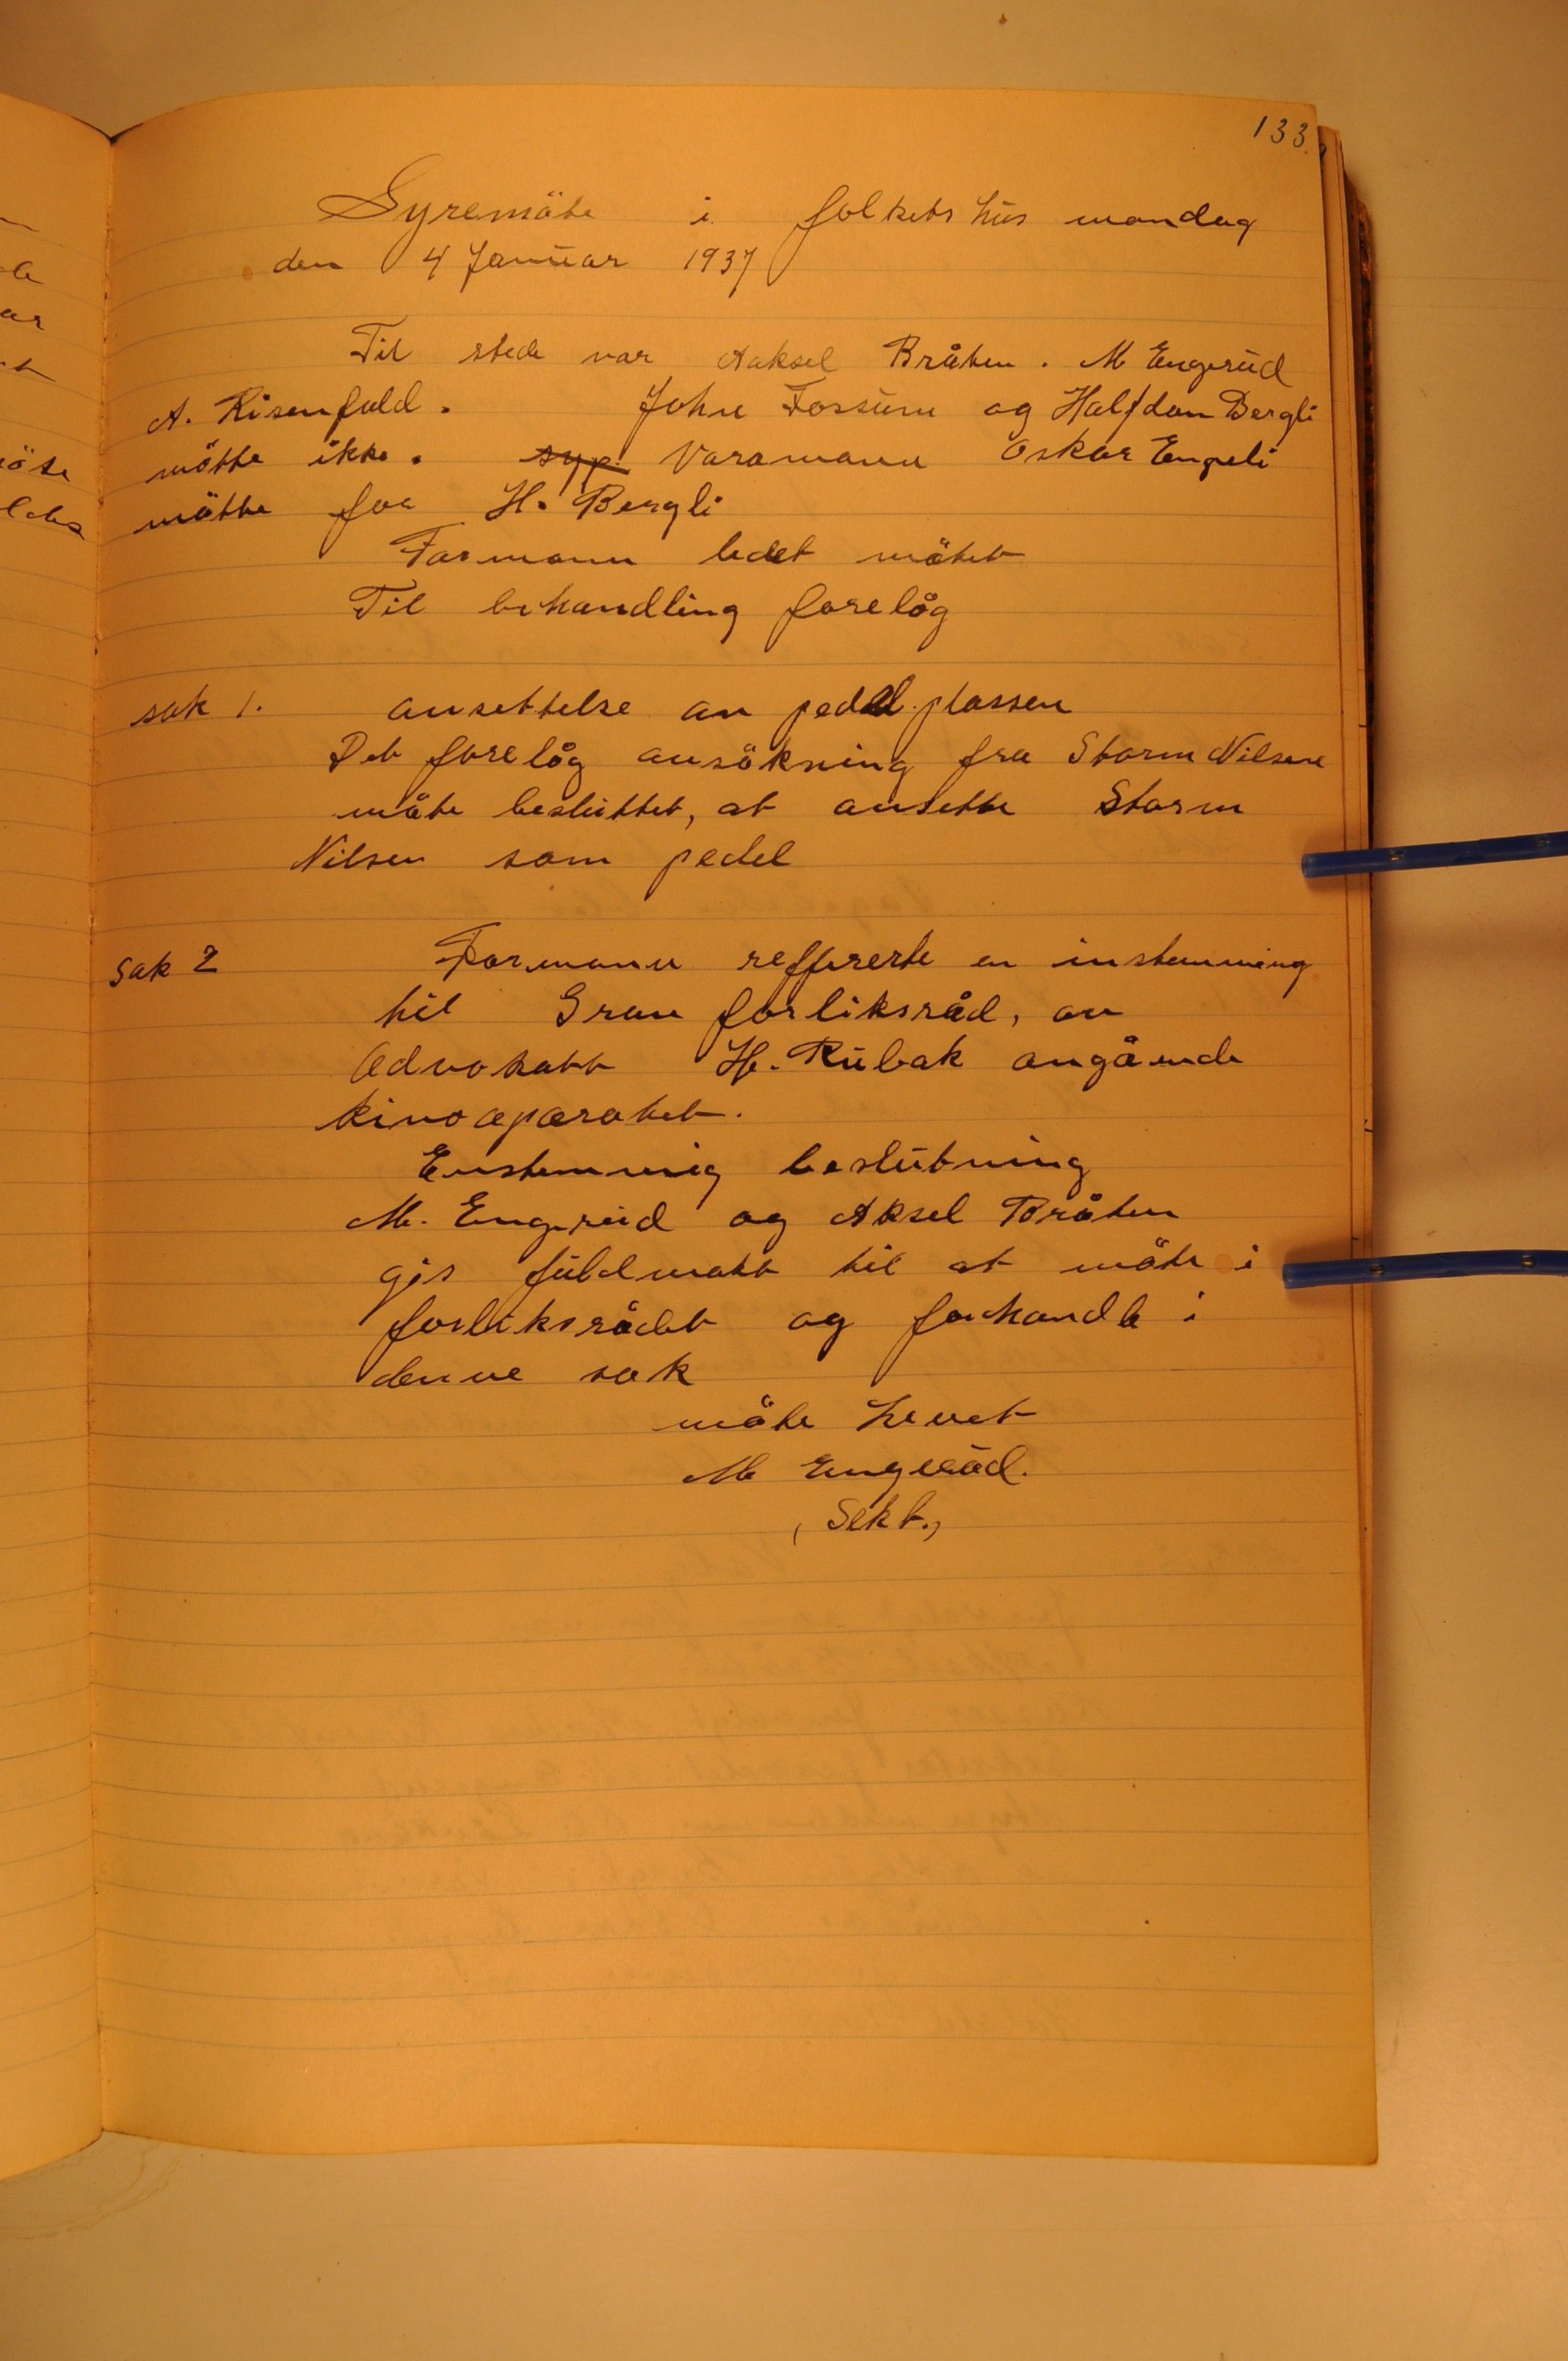 133.
Syremöte i folkets hus mandag
den 4 Januar 1937
Til stede var Aaksel Bråten. M Engerud
A. Risenfald. John Fossum og Halfdan Bergli
mötte ikke. syp. Varamann Oskar Engeli
mötte for H. Bergli
Formann ledet mötet
Til behandling forelåg
sak 1. ansettelse av pedel plassen
Det forelåg ansökning fra Storm Nilsen
möte besluttet, at ansette Storm
Nilsen som pedel
Sak 2 Formann reffrerte en instemning
til Gran forliksråd, av
Advokatt H. Rubak angående
kinoaparatet.
Enstemmig beslutning
M. Engerud og Aksel Bråten
gis fuldmakt til at möte i
forliksrådet og forhandle i
denne sak
möte hevet
M Engerud.
(Sekt.)